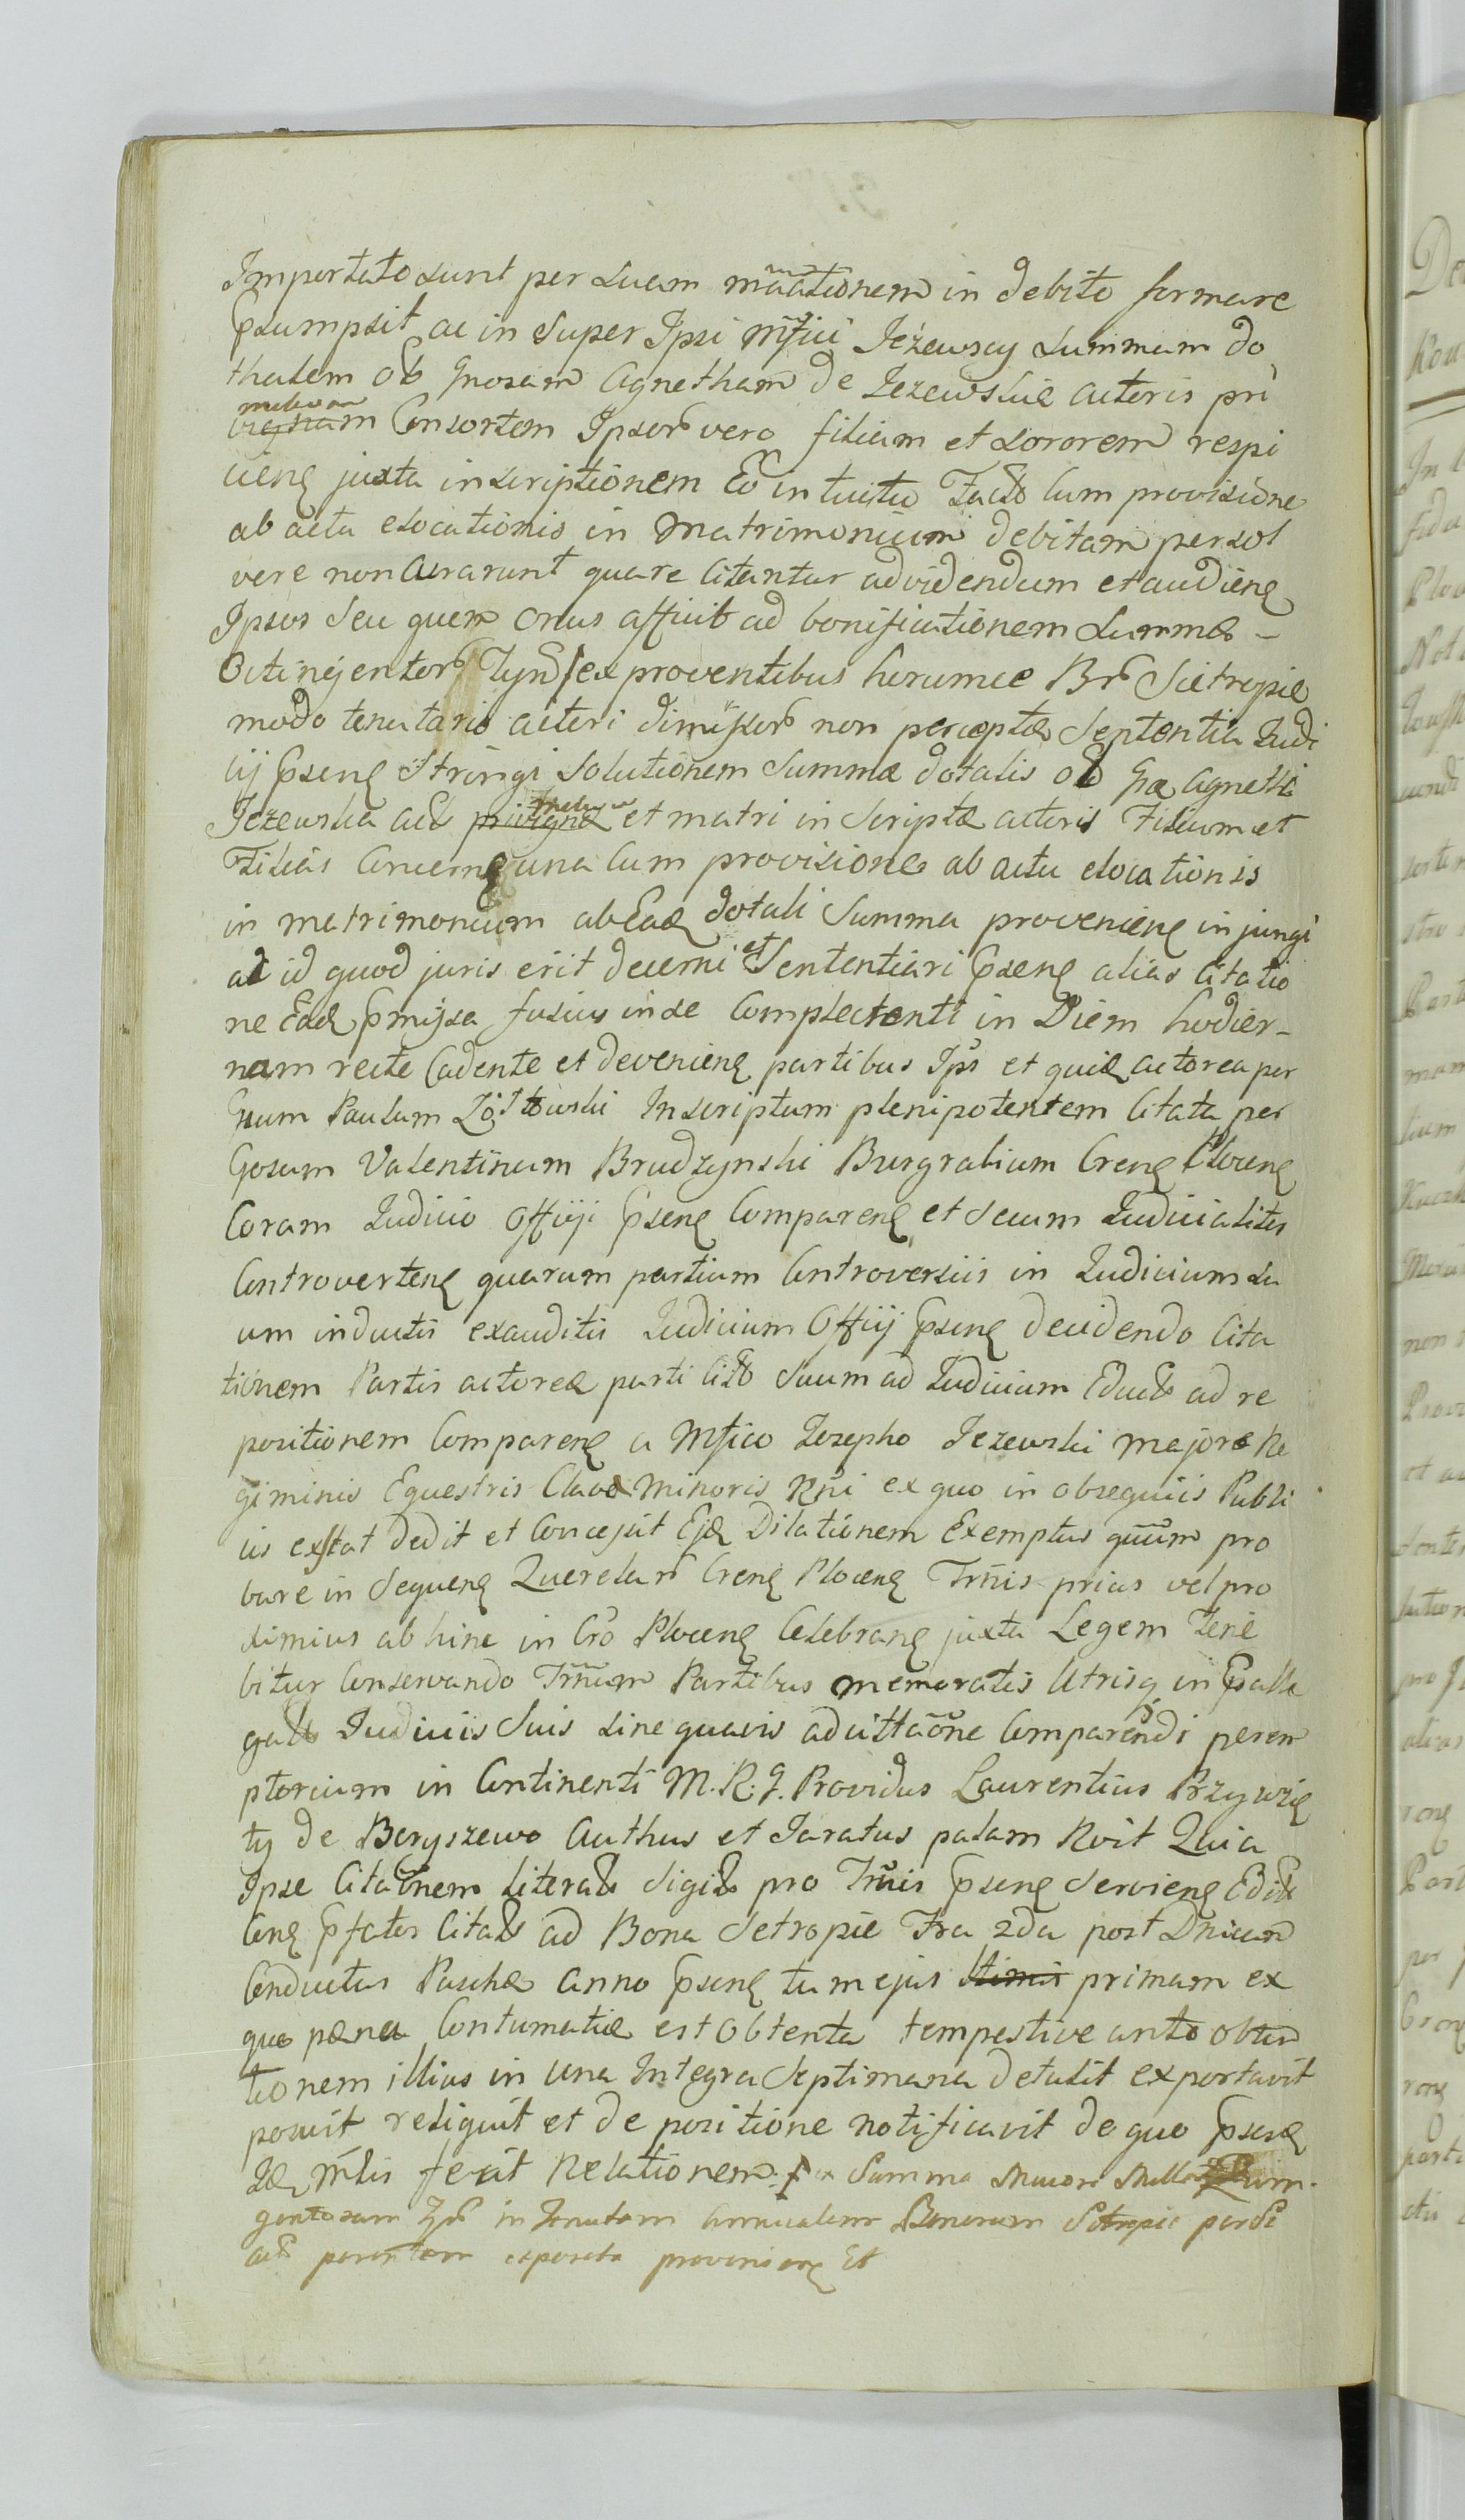 Importato sunt per suam mãñationem in debito formare
Psumpsit ac in super Ipsi Mfici Jeżewscy summam do
thalem ob Gnosam Agnetham de Jezewskie actoris pri
vignam Consortem Ipsor vero filiam et sororem respi
cienę juxta inscriptionem Eo intuitu Facto cum provisione
ab actu elocationis in matrimonium debitam persol
vere non curarunt quare citantur ad videndum et audienę
Ipsos seu quem onus afficit ad bonificationem summæ -
Octingentor Tyn ex proventibus horumce Br Sietropie
modo tenutario acteri dimissor non perceptæ Sententia Judi
cij Psenę Stringi solutionem Summæ dotalis ob Gæ Agnetti
Jezewska act privignæ et matri inscriptæ actoris Filiom et
Filias Concernę una cum provisione ab actu elocationis
in matrimonium ab Eadę dotali Summa provenienę injungi
ad id quod juris erit decerni et Sententiari Psenę alias Citatio
ne Eadę Pmissa fusius in se Complectenti in Diem hodier-
nam recte Cadente et devenienę partibus Ips et quidę actorea per
Gnum Paulum Żółtowski Inscriptum plenipotentem Citata per
Gosum Valentinum Brudzynski Burgrabium Crenę Plocenę
Coram Judicio Officij Psenę Comparenę et secum Judicialiter
Controvertenę quarum partium Controversiis in Judicium su
um inductis exauditis Judicium Officij Psenę decidendo Cita
tionem Partis actoreæ parti Cito suum ad Judicium Educto ad re
positionem Comparenę a Mfico Josepho Jezewski majore Re
giminis Equestris Clavæ Minoris Rñi ex quo in obsequiis Publi
cis exstat dedit et Concessit Ejdę Dilationem Exemptus quũm pro
bare in Sequenę Querelar Crenę Plocenę Trñis prius vel pro
ximius ab hinc in Cro Plocenę Celebranę juxta Legem Tene
bitur Conservando Trñum Partibus memoratis Utrisq in Psalle
gato Judiciis Suis sine quavis adcittãone Comparendi perem
ptorium in Continenti M. R. q. Providus Laurentius Przywię
ty de Boryszewo Authus et Juratus palam Rvit Quia
Ipse Citãonem Literato Sigito pro Trñis Psenę Servienę Edito
Cenę Pfatos Citato ad Bona Setropie Fra 2da post Dnicam
Conductus Paschæ Anno Psenę tum ejus Stimis primam ex
quo pœna Contumatiæ est Obtenta tempestive ante obten
tionem illius in una Integra Septimana detulit exportavit
posuit reliquit et de positione notificavit de quo Psenę
Idę mlis fecit Relationem. ex Summa Minori Mille Quin.
gentorum Tyn in Tenutam Annualem Bonorum Setropie per Se
act parentem exposita provenienę Et